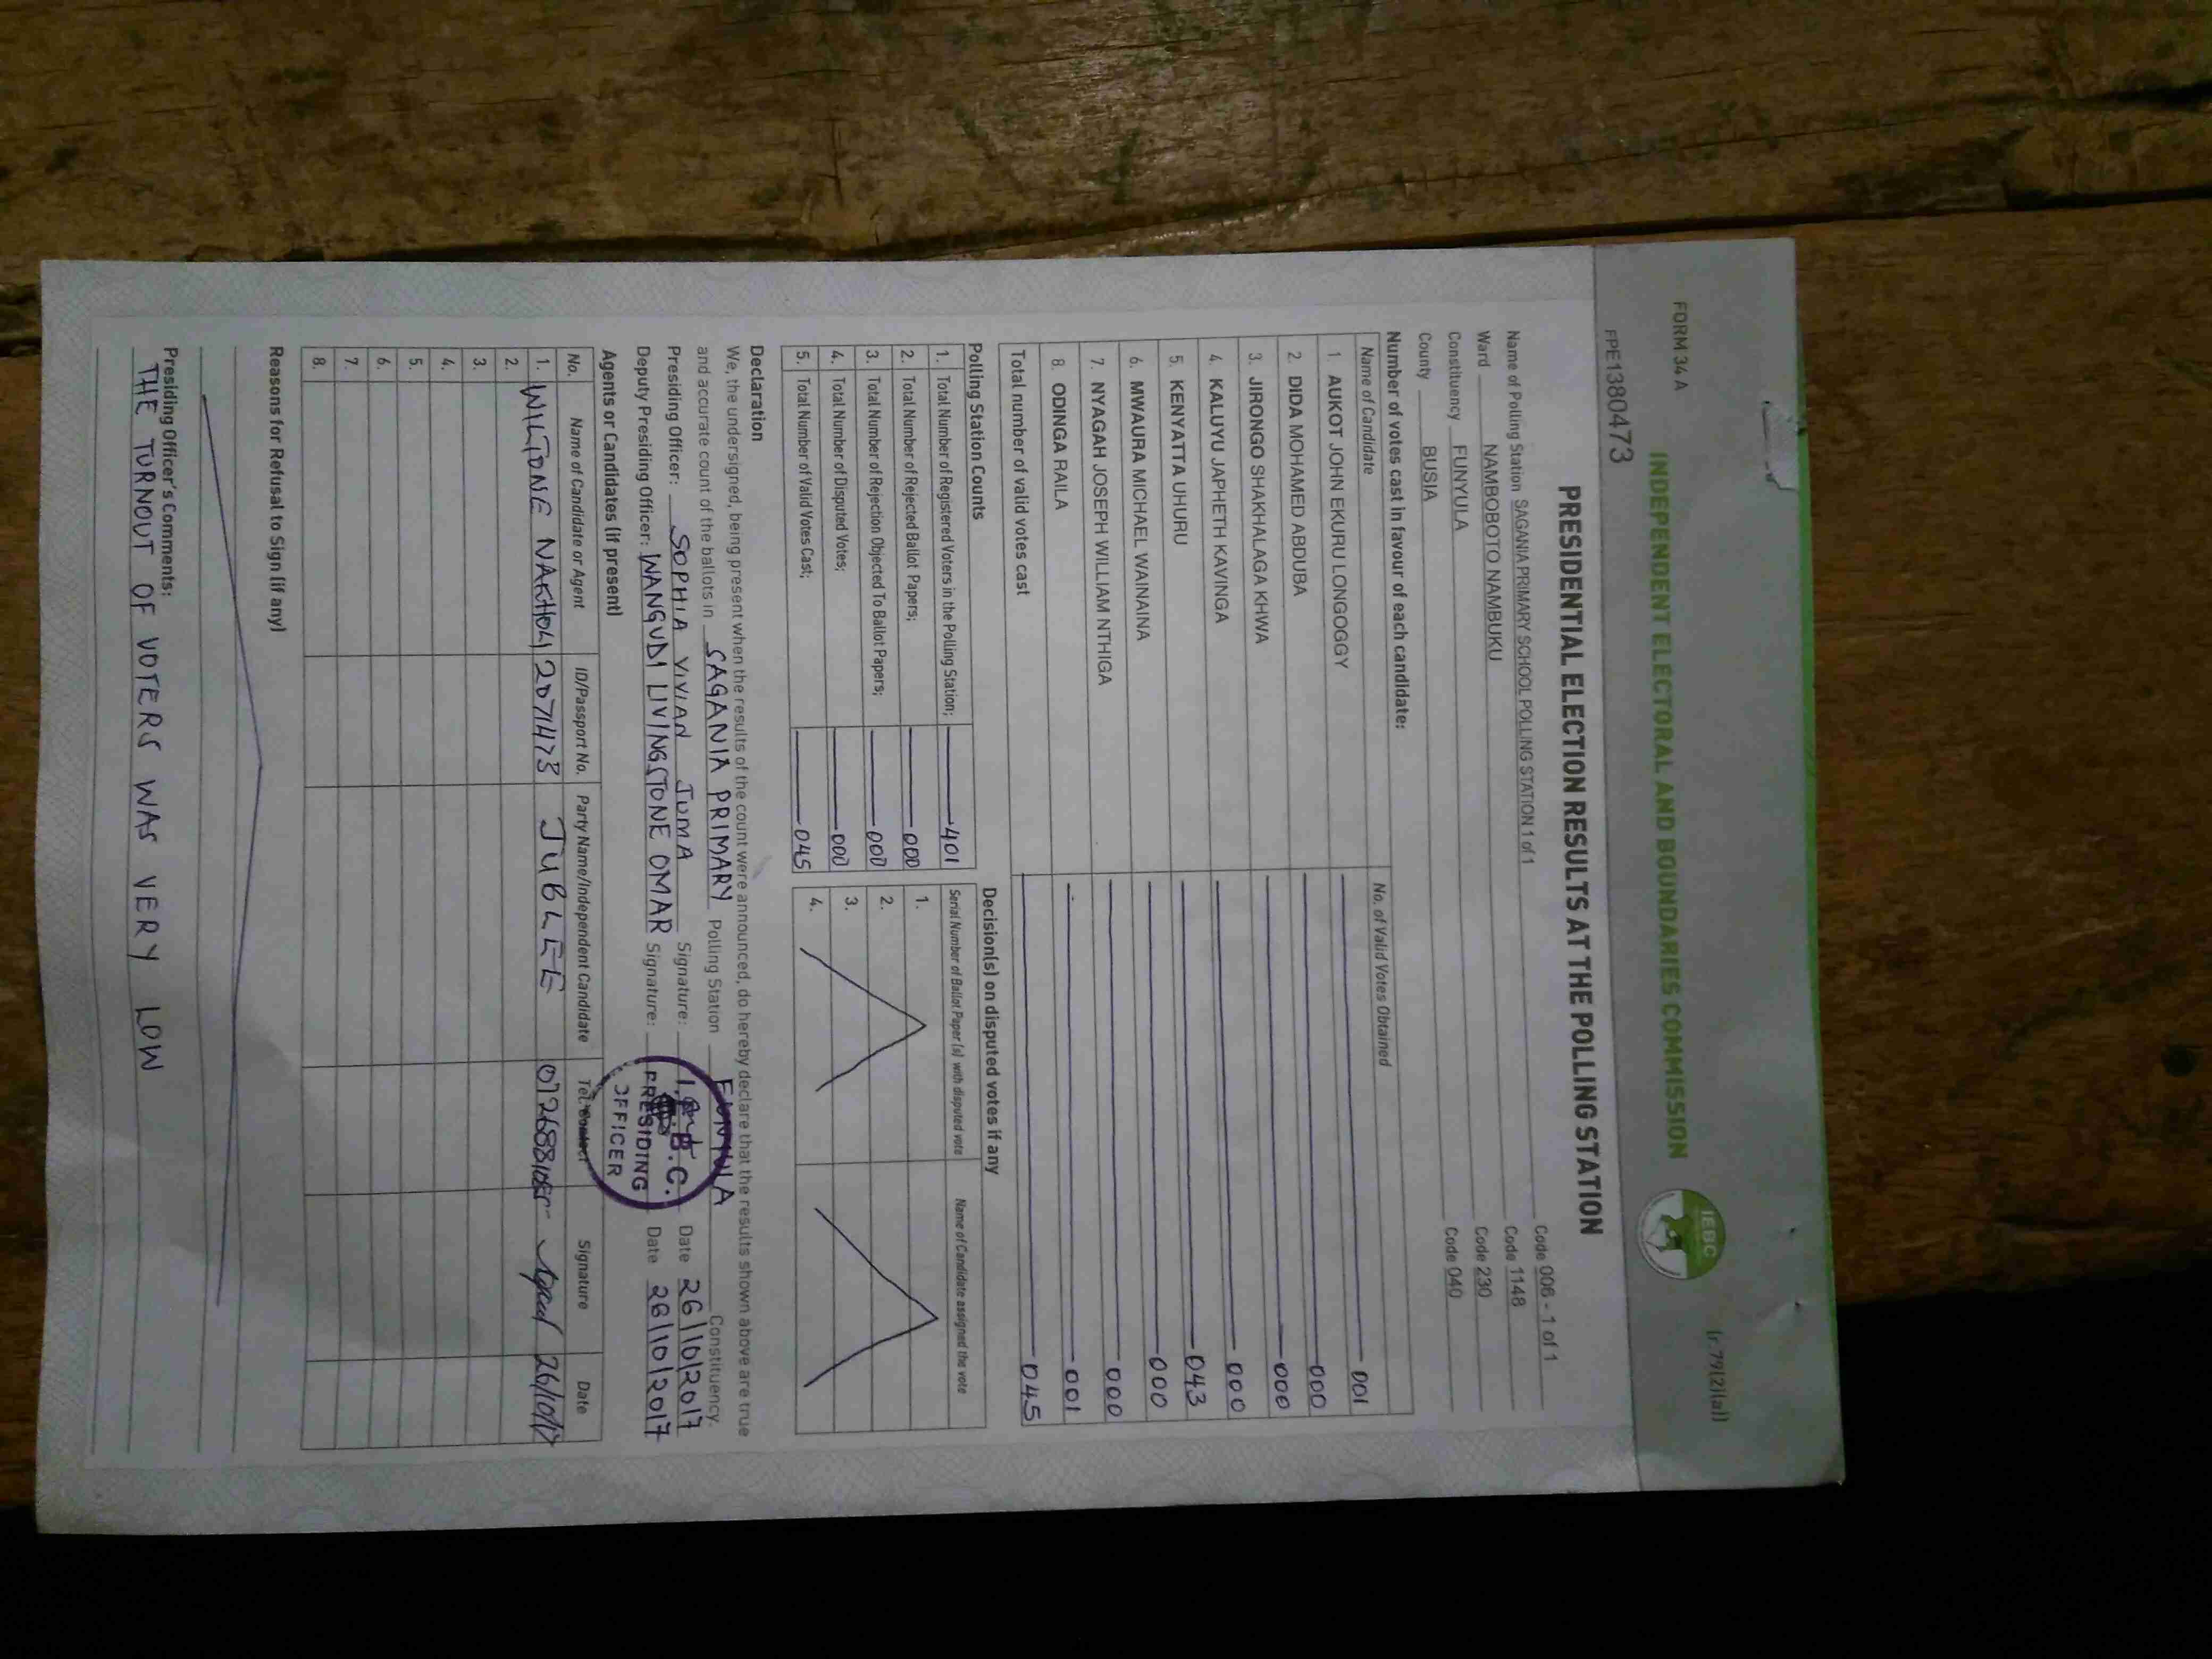 FORM 34 A
(r.79(2)(a))
INDEPENDENT ELECTORAL AND BOUNDARIES COMMISSION
IEBC
FPE1380473
PRESIDENTIAL ELECTION RESULTS AT THE POLLING STATION
Name of Polling Station SAGANIA PRIMARY SCHOOL POLLING STATION 1 of 1 Code 006 - 1 of 1
Ward NAMBOBOTO NAMBUKU Code 1148
Constituency FUNYULA Code 230
County BUSIA Code 040
Number of votes cast in favour of each candidate:
Name of Candidate No. of Valid Votes Obtained
1. AUKOT JOHN EKURU LONGOGGY 001
2. DIDA MOHAMED ABDUBA 000
3. JIRONGO SHAKHALAGA KHWA 000
4. KALUYU JAPHETH KAVINGA 000
5. KENYATTA UHURU 043
6. MWAURA MICHAEL WAINAINA 000
7. NYAGAH JOSEPH WILLIAM NTHIGA 000
8. ODINGA RAILA 001
Total number of valid votes cast 045
Polling Station Counts
1. Total Number of Registered Voters in the Polling Station; 401
2. Total Number of Rejected Ballot Papers; 000
3. Total Number of Rejection Objected To Ballot Papers; 000
4. Total Number of Disputed Votes; 000
5. Total Number of Valid Votes Cast; 045
Decision(s) on disputed votes if any
Serial Number of Ballot Paper (s) with disputed vote Name of Candidate assigned the vote
1.
2.
3.
4.
Declaration
We, the undersigned, being present when the results of the count were announced, do hereby declare that the results shown above are true
and accurate count of the ballots in SAGANIA PRIMARY Polling Station FUNYULA Constituency.
Presiding Officer: SOPHIA VIVIAN JUMA Signature: Date 26/10/2017
Deputy Presiding Officer: WANGUDI LIVINGSTONE OMAR Signature: Date 26/10/2017
I.E.B.C.
PRESIDING
OFFICER
Agents or Candidates (if present)
No. Name of Candidate or Agent ID/Passport No. Party Name/Independent Candidate Tel. Signature Date
1. 2071473 JUBLEE 26/10/17
2.
3.
4.
5.
6.
7.
8.
Reasons for Refusal to Sign (if any)
Presiding Officer's Comments:
THE TURNOUT OF VOTERS WAS VERY LOW